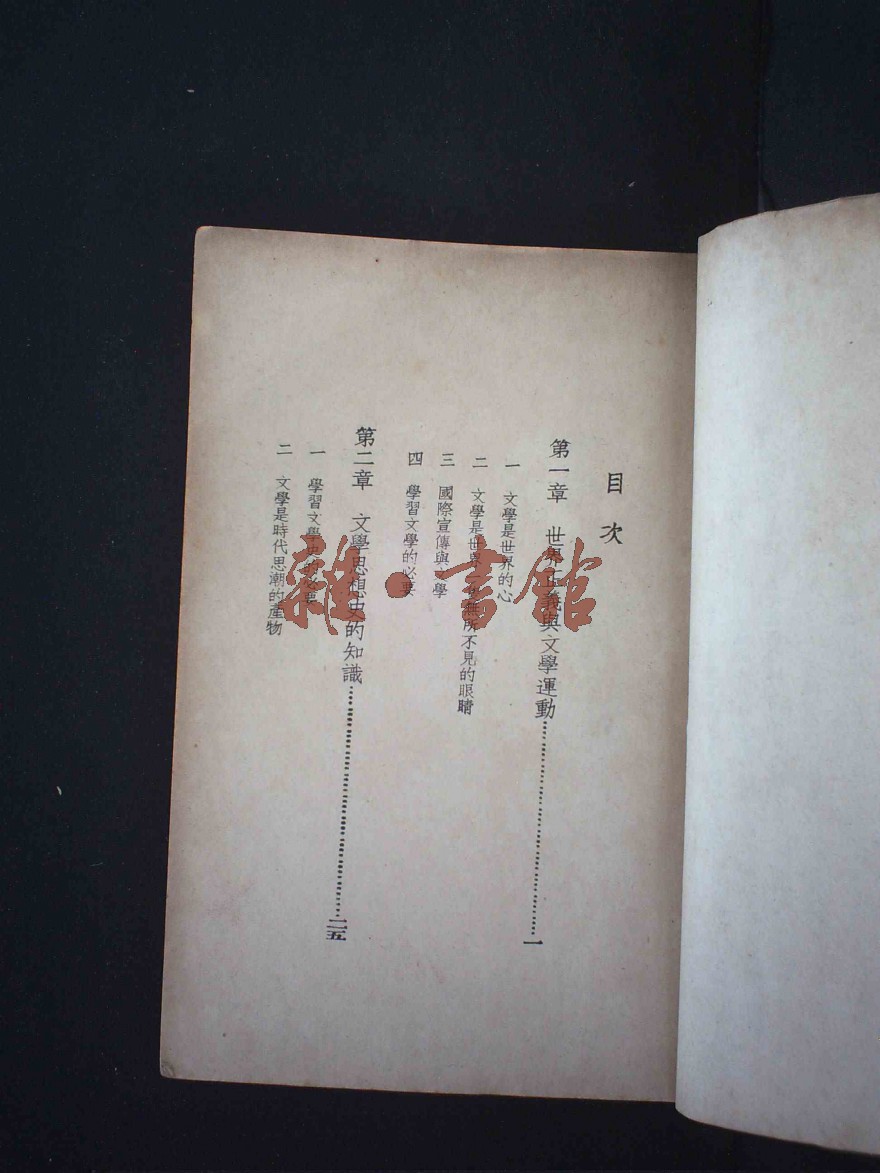 目次
第一章 世界正義與文學運動……一
一 文學是世界的心
二 文學是世界 無所不見的眼睛
三 國際宣傳與文學
四 學習文學的必要
第二章 文學思想史的知識……二五
一 學習文學史的必要
二 文學是時代思潮的產物
雜·書館